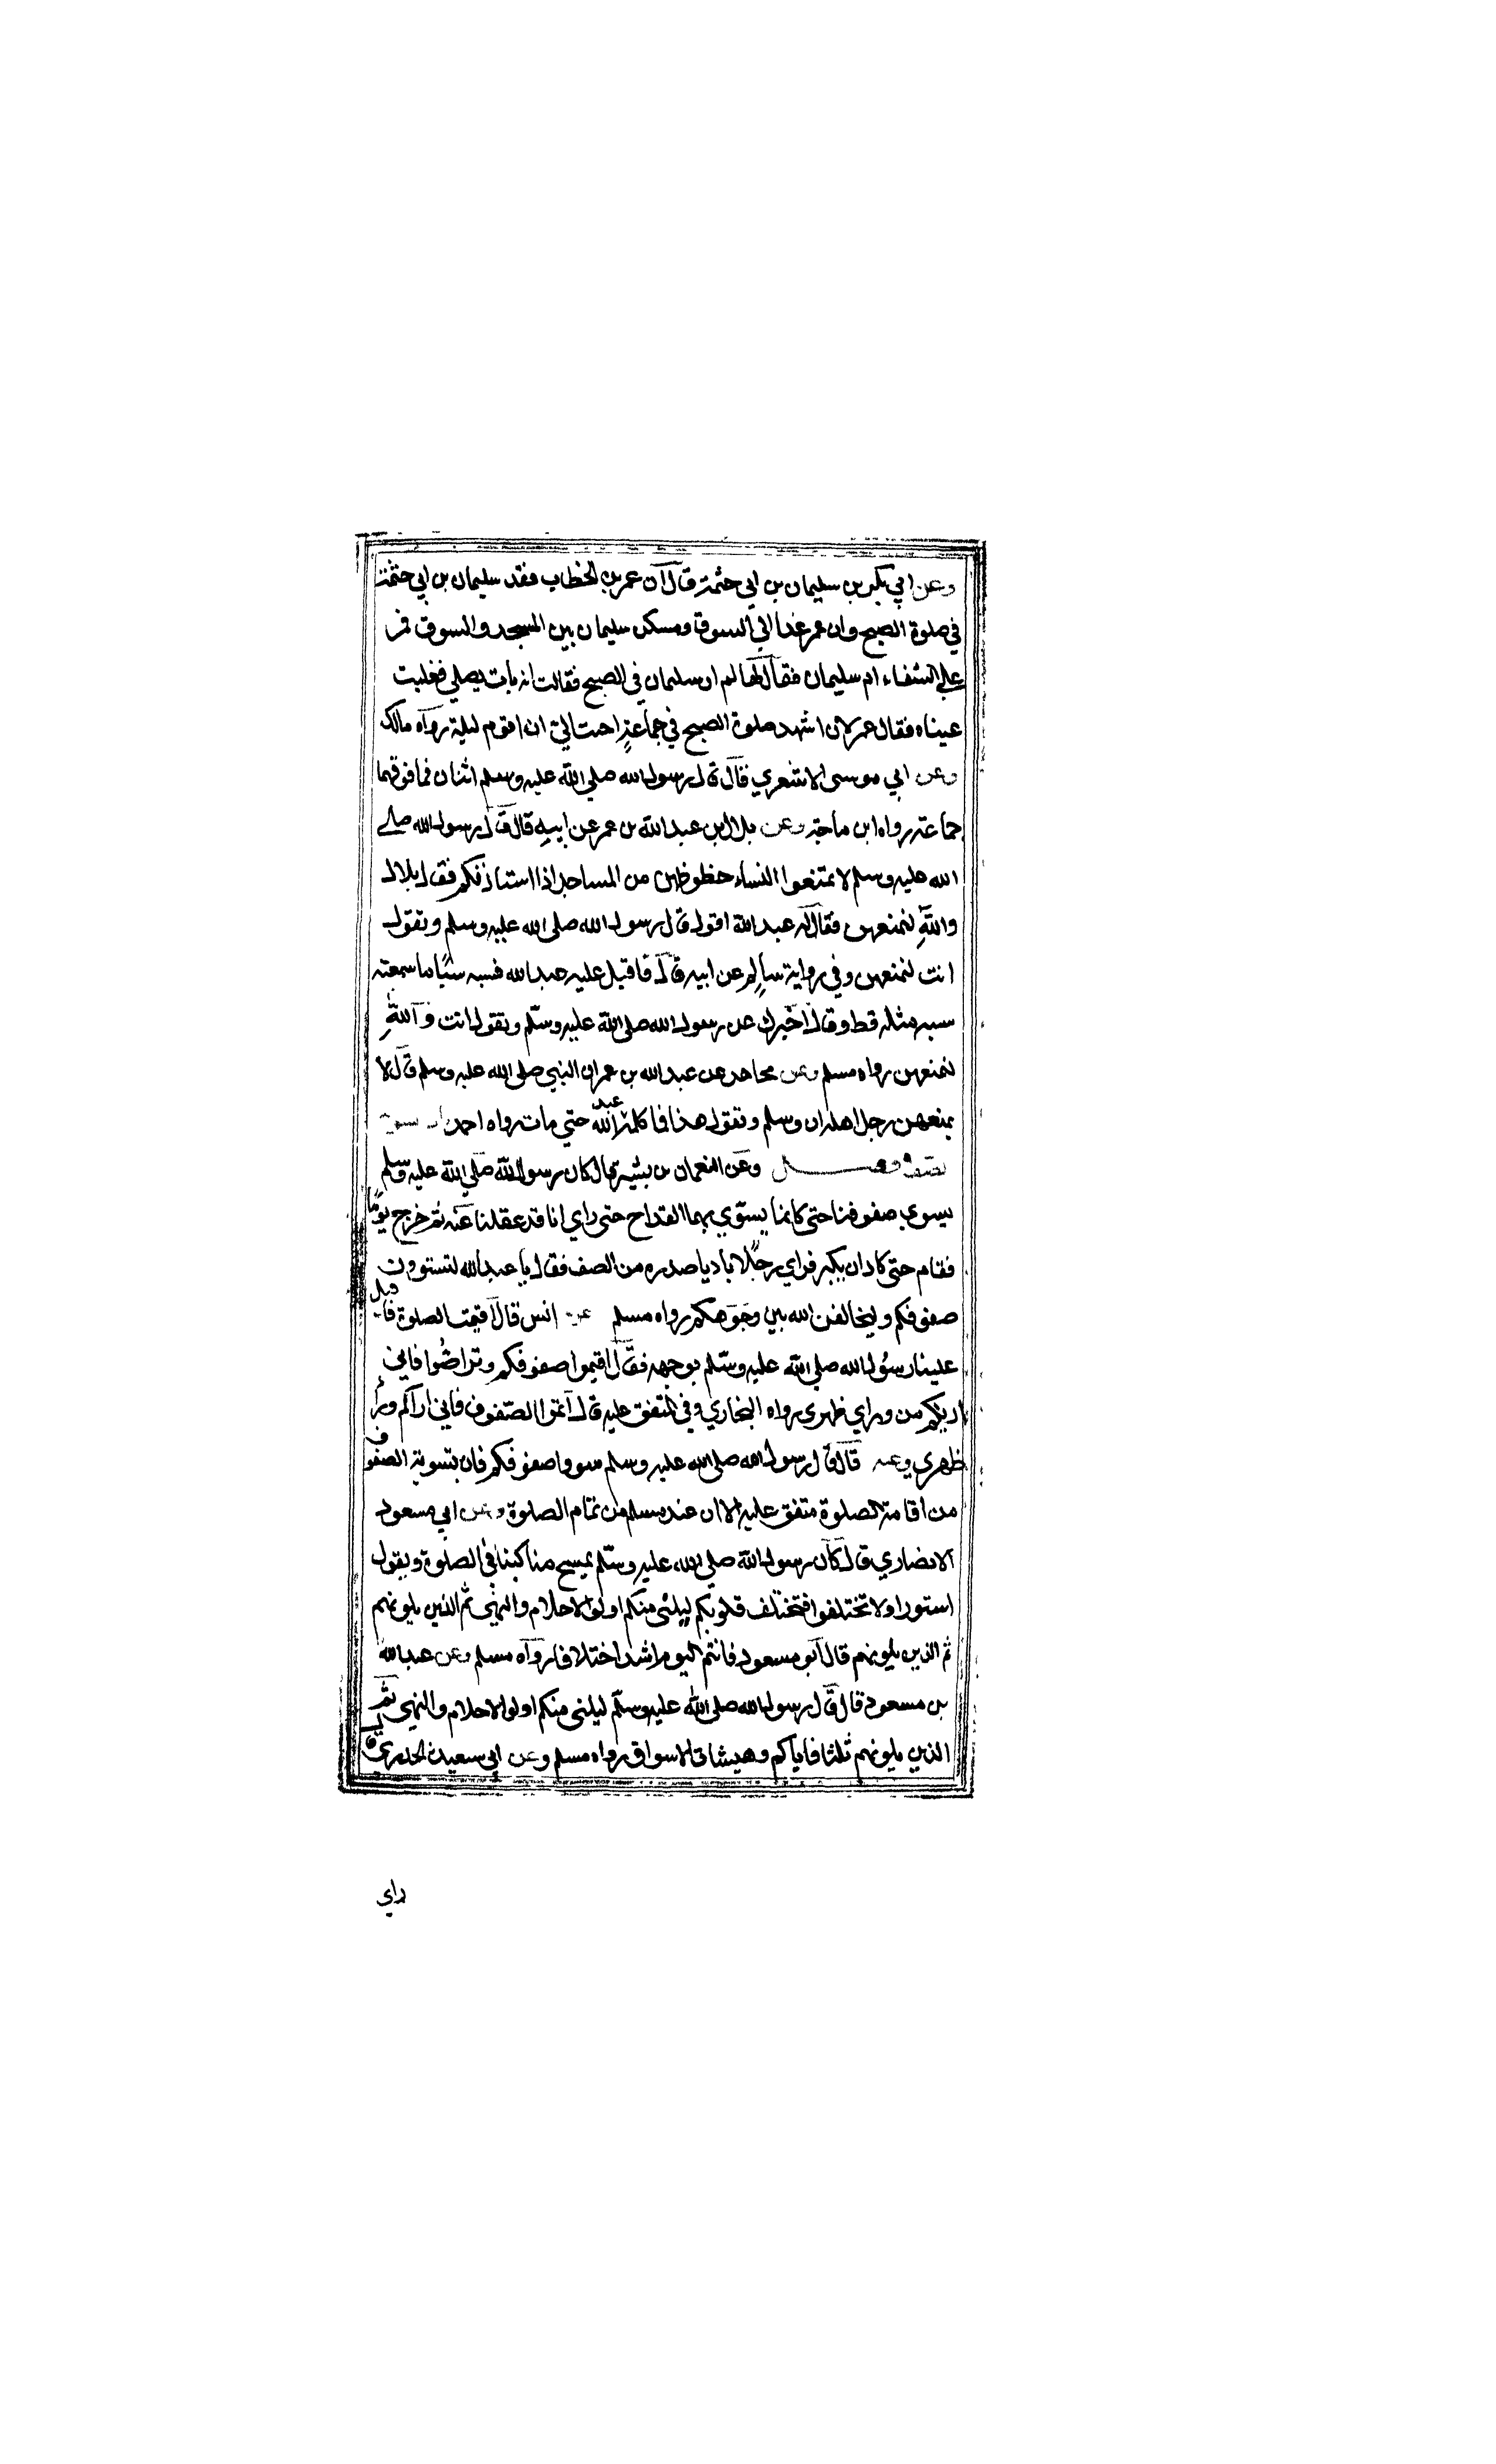 وعن ابي بكر بن سليمان بن ابي حثمة قال ان عمر بن الخطاب فقد سليمان بن ابي حثمة
في صلوة الصبح وان عمر غدا الي السوق ومسكن سليمان بين المسجد والسوق فمر
علي الشفاء ام سليمان فقال لها لم ار سليمان في الصبح فقالت انه بات يصلي فغلبت
عيناه فقال عمر لان اشهد صلوة الصبح في جماعةٍ احب الي ان اقوم ليلة رواه مالك
وعن ابي موسى الاشعري قال قال رسول الله صلي الله عليه وسلم اثنان فما فوقهما
جماعة رواه ابن ماجة وعن بلال بن عبد الله بن عمر عن ابيه قال قال رسول الله صلي
الله عليه وسلم لا تمنعوا النساء حظوظهن من المساجد اذا استاذنكم فقال بلال
واللهِ لنمنعهن فقال له عبد الله اقول قال رسول الله صلى الله عليه وسلم وتقول
انت لنمنعهن وفي رواية سالم عن ابيه قال فاقبل عليه عبد الله فسبه سبًا ما سمعته
سبه مثله قط وقال اخبرك عن رسول الله صلى الله عليه وسلم وتقول انت واللهِ
لنمنعهن رواه مسلم وعن مجاهد عن عبد الله بن عمر ان النبي صلى الله عليه وسلم قال لا
يمنعهن رجل اهله ان وسلم وتقول هذا فما كلمه عبد الله حتي مات رواه احمد
الصف فصل وعن النعمان بن بشير قال كان رسول الله صلي الله عليه وسلم
يسوي صفوفنا حتى كانما يسوّي بها القداح حتى راي انا قد عقلنا عنه ثم خرج يومًا
فقام حتى كاد ان يكبر فراي رجلًا باديا صدره من الصف فقال يا عباد الله لتسوون
صفوفكم وليخالفن الله بين وجوهكم رواه مسلم عن انس قال اقيمت الصلوة فاقبل
علينا رسول الله صلي الله عليه وسلم بوجهه فقال اقيموا صفوفكم وتراصُّوا فاني
اريكم من وراي ظهري رواه البخاري وفي المتفق عليه قال اتموا الصفوف فاني اراكم وراء
ظهري وعنه قال قال رسول الله صلى الله عليه وسلم سووا صفوفكم فان تسوية الصفوف
من اقامة الصلوة متفق عليه الا ان عند مسلم من تمام الصلوة وعن ابي مسعود
الانصاري قال كان رسول الله صلي الله عليه وسلم يمسح مناكبنا في الصلوة ويقول
استووا ولا تختلفوا فتختلف قلوبكم ليلني منكم اولوا الاحلام والنهي ثم الذين يلونهم
ثم الذين يلونهم قال ابو مسعود فانتم اليوم اشد اختلافا رواه مسلم وعن عبد الله
بن مسعود قال قال رسول الله صلي الله عليه وسلم ليلني منكم اولوا الاحلام والنهي ثم
الذين يلونهم ثلثا فاياكم وهيشات الاسواق رواه مسلم وعن ابي سعيدن الخدري قال
راي